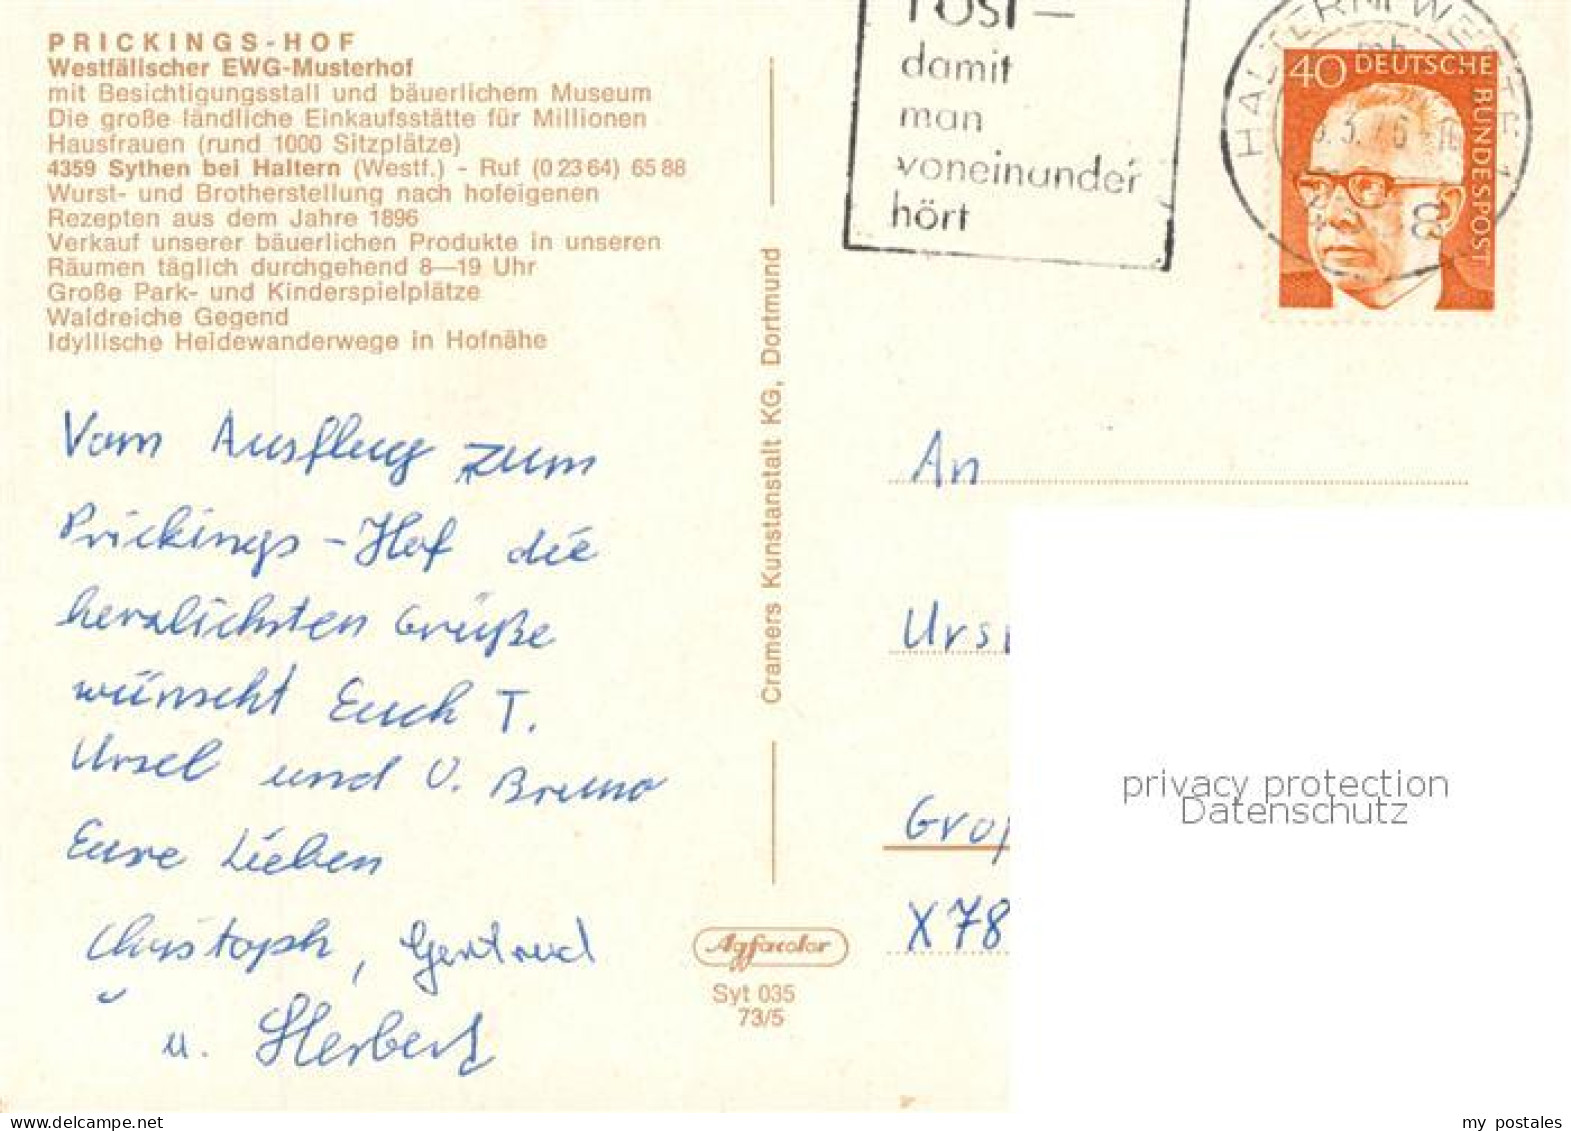 PRICKINGS-HOF
Westfälischer EWG-Musterhof
mit Besichtigungsstall und bäuerlichem Museum
Die große ländliche Einkaufsstätte für Millionen
Hausfrauen (rund 1000 Sitzplätze)
4359 Sythen bei Haltern (Westf.) - Ruf (0 23 64) 65 88
Wurst- und Brotherstellung nach hofeigenen
Rezepten aus dem Jahre 1896
Verkauf unserer bäuerlichen Produkte in unseren
Räumen täglich durchgehend 8—19 Uhr
Große Park- und Kinderspielplätze
Waldreiche Gegend
Idyllische Heidewanderwege in Hofnähe
Vom Ausflug zum
Prickings-Hof die
herzlichsten Grüße
wünscht Euch T.
Ursel und O. Bruno
Eure Lieben
Christoph, Gertrud
u. Herbert
Cramers Kunstanstalt KG, Dortmund
Agfacolor
Syt 035
73/5
POST —
damit
man
voneinander
hört
HALTERN, WESTF 1
mb
40 DEUTSCHE
BUNDESPOST
An
Urs
Groß
X78
privacy protection
Datenschutz
delcampe.net
my_postales